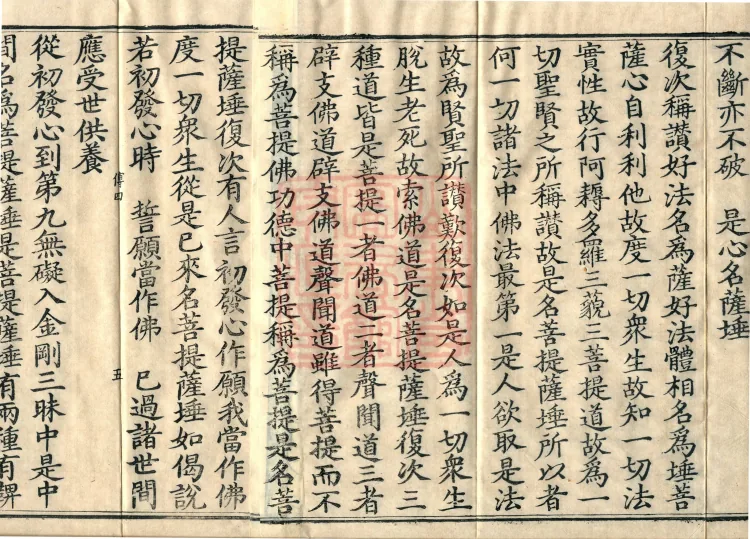 不斷亦不破 是心名薩埵
復次稱讚好法名爲薩好法體相名爲埵菩
薩心自利利他故度一切衆生故知一切法
實性故行阿耨多羅三藐三菩提道故爲一
切聖賢之所稱讚故是名菩提薩埵所以者
何一切諸法中佛法最第一是人欲取是法
故爲賢聖所讚歎復次如是人爲一切衆生
脫生老死故索佛道是名菩提薩埵復次三
種道皆是菩提一者佛道二者聲聞道三者
辟支佛道辟支佛道聲聞道雖得菩提而不
稱爲菩提佛功德中菩提稱爲菩提是名菩
提薩埵復次有人言初發心作願我當作佛
度一切衆生從是已來名菩提薩埵如偈說
若初發心時 誓願當作佛 已過諸世間
傅四 五
應受世供養
從初發心到第九無礙入金剛三昧中是中
間名爲菩提薩埵是菩提薩埵有兩種有鞞